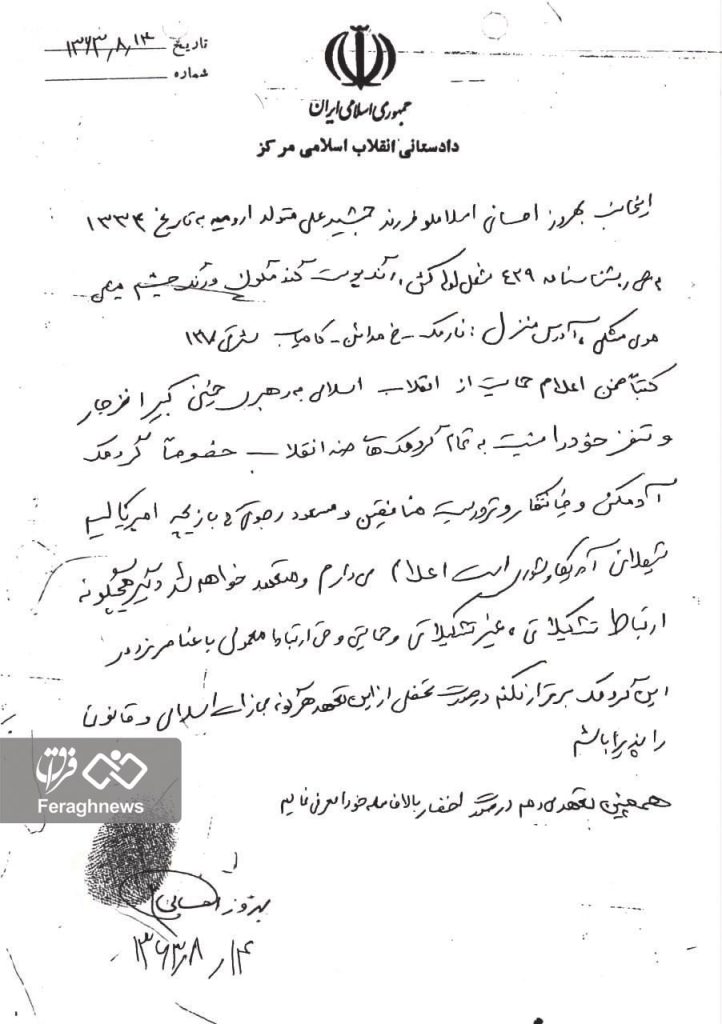 تاریخ ۱۳۶۳٫۸٫۱۴
شماره
جمهوری اسلامی ایران
دادستانی انقلاب اسلامی مرکز
اینجانب بهروز احسانی اسلاملو فرزند جمشیدعلی متولد ارومیه به تاریخ ۱۳۳۴
بشناسنامه ۴۲۹ شغل لوله کش، رنگ پوست گندمگون و رنگ چشم میشی
موی مشکی، آدرس منزل: نارمک - خ مدائن - کامیاب شرقی ۱۳۸
کتباً ضمن اعلام حمایت از انقلاب اسلامی به رهبری خمینی کبیر انزجار
و تنفر خود را نسبت به تمام گروهک‌ها ضد انقلاب خصوصاً گروهک
آدمکش و جنایتکار و تروریست منافقین و مسعود رجوی که بازیچه امپریالیسم
آمریکا و شوروی است اعلام می دارم و متعهد خواهم شد دیگر هیچگونه
ارتباط تشکیلاتی، غیر تشکیلاتی و حمایتی و حتی ارتباط معمولی با عناصر
این گروهک برقرار نکنم در صورت تخلفی از این تعهد هرگونه مجازات اسلامی و قانونی
را پذیرا باشم
همچنین تعهد می دهم در صورت احضار بلافاصله خود را معرفی نمایم
بهروز احسانی
۱۳۶۳٫۸٫۱۴
فراق
Feraghnews